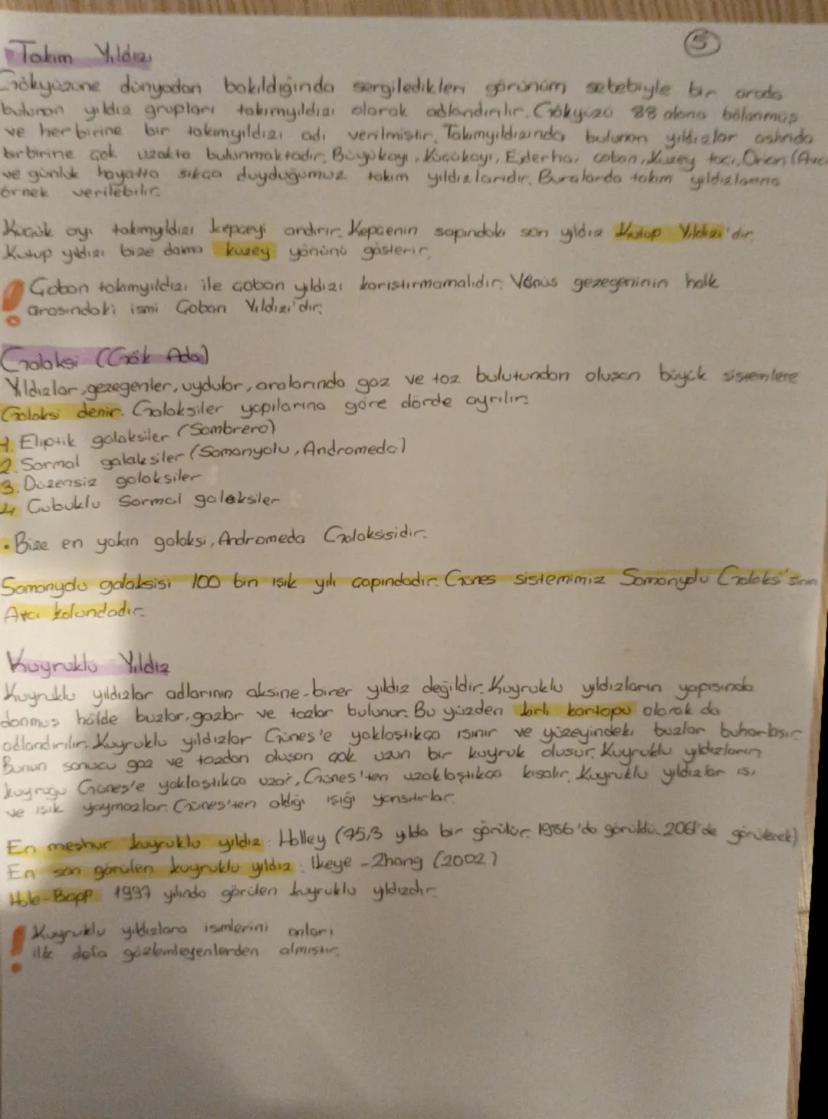 5
Takım Yıldızı
Gökyüzüne dünyadan bakıldığında sergiledikleri görünüm sebebiyle bir arada
bulunan yıldız grupları takımyıldızı olarak adlandırılır. Gökyüzü 88 alana bölünmüş
ve her birine bir takımyıldızı adı verilmiştir. Takımyıldızında bulunan yıldızlar aslında
birbirine çok uzakta bulunmaktadır. Büyükayı, Küçükayı, Ejderha, çoban, Kuzey tacı, Orion (Avcı
ve günlük hayatta sıkça duyduğumuz takım yıldızlarıdır. Buralarda takım yıldızlarına
örnek verilebilir.
Küçük ayı takımyıldızı kepçeyi andırır. Kepçenin sapındaki son yıldız Kutup Yıldızı'dır.
Kutup yıldızı bize daima kuzey yönünü gösterir.
! Çoban takımyıldızı ile çoban yıldızı karıştırmamalıdır. Venüs gezegeninin halk
arasındaki ismi Çoban Yıldızı'dır.
Galaksi (Gök Ada)
Yıldızlar, gezegenler, uydular, aralarında gaz ve toz bulutundan oluşan büyük sistemlere
Galaksi denir. Galaksiler yapılarına göre dörde ayrılır.
1. Eliptik galaksiler (Sombrero)
2. Sarmal galaksiler (Samanyolu, Andromeda)
3. Düzensiz galaksiler
4. Çubuklu Sarmal galaksiler
• Bize en yakın galaksi, Andromeda Galaksisidir.
Samanyolu galaksisi 100 bin ışık yılı çapındadır. Güneş sistemimiz Samanyolu Galaksi'sinin
Avcı kolundadır.
Kuyruklu Yıldız
Kuyruklu yıldızlar adlarının aksine birer yıldız değildir. Kuyruklu yıldızların yapısında
donmuş hâlde buzlar, gazlar ve tozlar bulunur. Bu yüzden kirli kartopu olarak da
adlandırılır. Kuyruklu yıldızlar Güneş'e yaklaştıkça ısınır ve yüzeyindeki buzlar buharlaşır.
Bunun sonucu gaz ve tozdan oluşan çok uzun bir kuyruk oluşur. Kuyruklu yıldızların
kuyruğu Güneş'e yaklaştıkça uzar, Güneş'ten uzaklaştıkça kısalır. Kuyruklu yıldızlar ısı
ve ışık yaymazlar. Güneş'ten aldığı ışığı yansıtırlar.
En meşhur kuyruklu yıldız: Halley (75,3 yılda bir görülür. 1986'da görüldü. 2061'de görülecek)
En son görülen kuyruklu yıldız: Ikeye-Zhang (2002)
Hale-Bopp 1997 yılında görülen kuyruklu yıldızdır.
! Kuyruklu yıldızlara isimlerini onları
ilk defa gözlemleyenlerden almıştır.